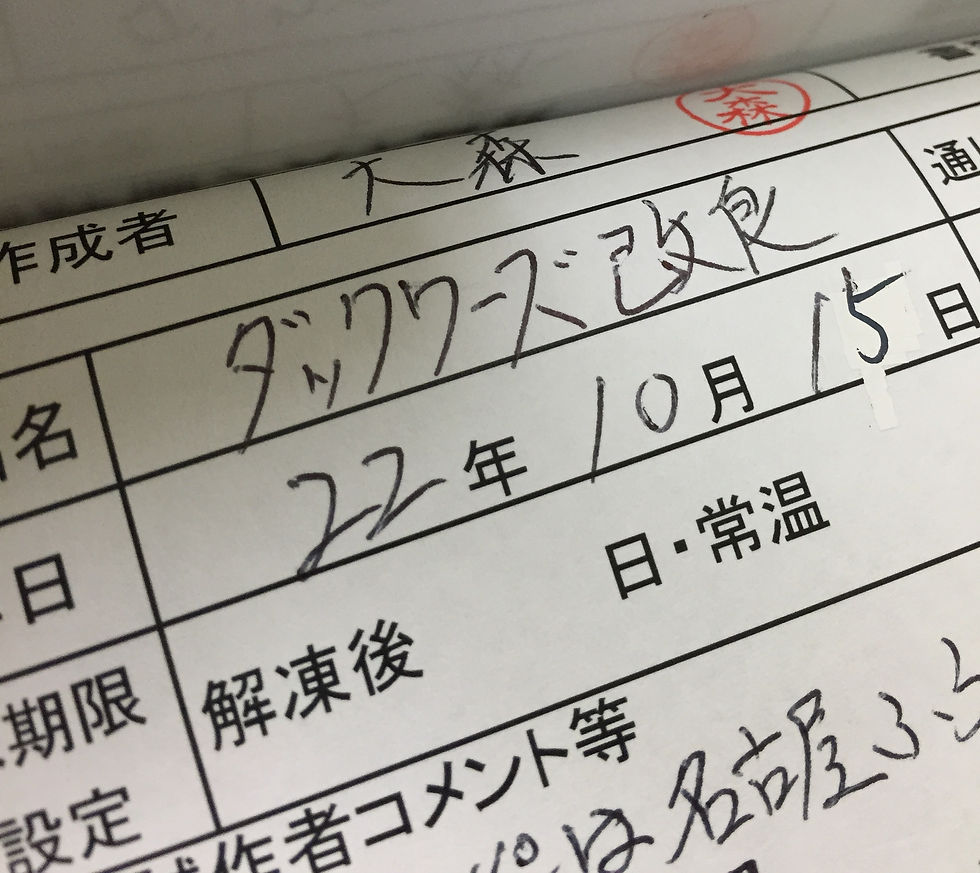 作成者 大森 大森
名 ダックワーズ改良 通
日 22年10月15日
期限 解凍後 日・常温
設定
作者コメント等
は名古屋ふら